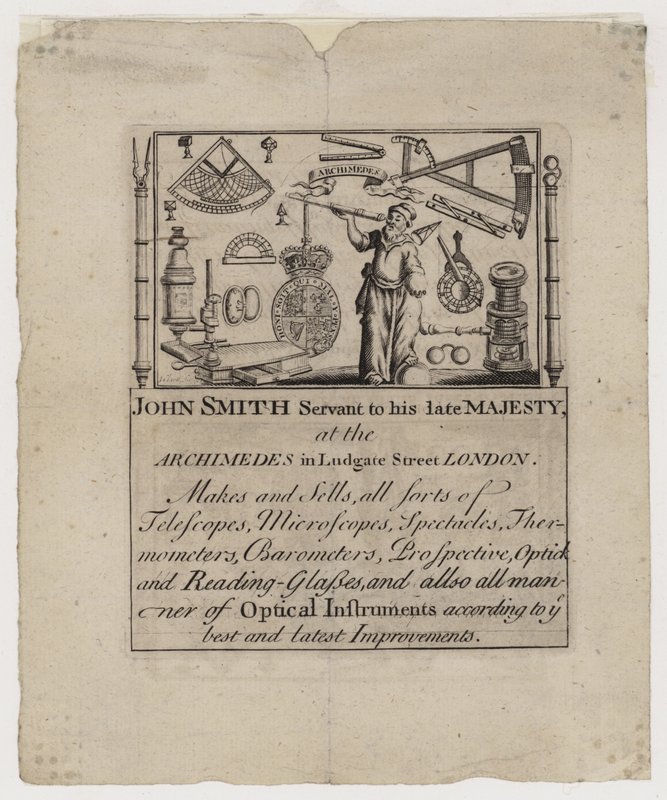 ARCHIMEDES
HONI · SOIT · QUI · MAL · Y
JOHN SMITH Servant to his late MAJESTY,
at the
ARCHIMEDES in Ludgate Street LONDON.
Makes and Sells, all ſorts of
Teleſcopes, Microſcopes, Spectacles, Ther-
mometers, Barometers, Proſpective, Optick
and Reading-Glaſses, and allso all man-
ner of Optical Inſtruments according to yͤ
best and latest Improvements.